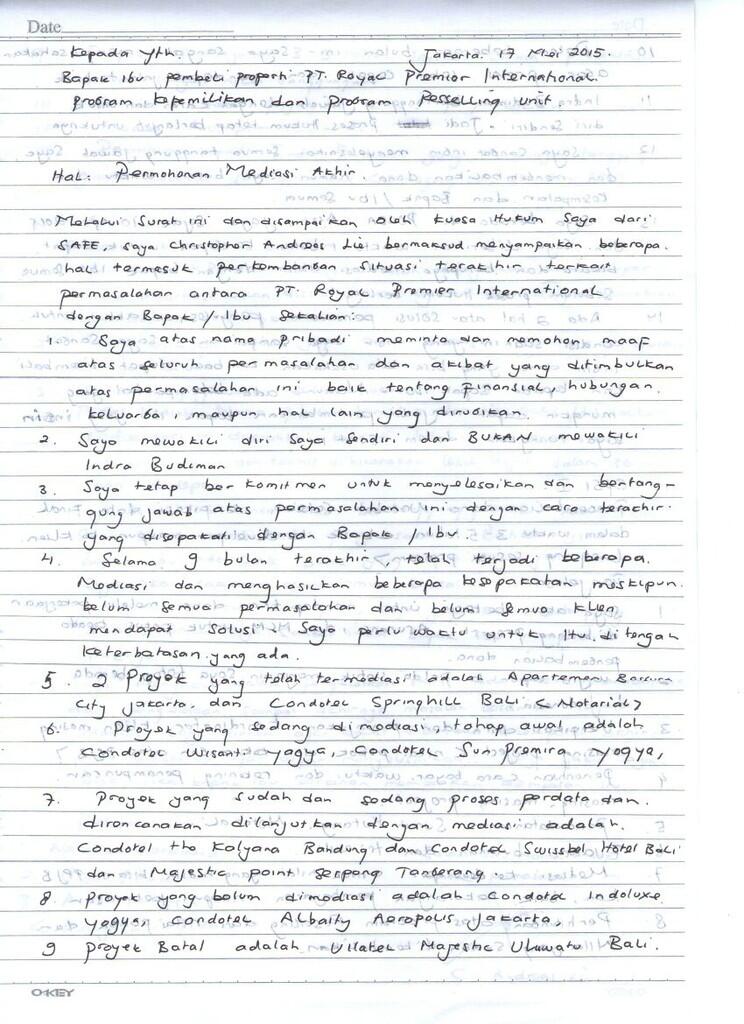 Date
Kepada Yth. Jakarta. 17 Mei 2015.
Bapak Ibu pembeli properti PT. Royal Premier International.
program kepemilikan dan program Resselling unit.
Hal: Permohonan Mediasi Akhir.
Melalui surat ini dan disampaikan oleh kuasa Hukum saya dari
SAFE, saya Christopher Andreas Lie bermaksud menyampaikan beberapa.
hal termasuk perkembangan situasi terakhir terkait
permasalahan antara PT. Royal Premier International
dengan Bapak / Ibu sekalian:
1. Saya atas nama pribadi meminta dan memohon maaf
atas seluruh permasalahan dan akibat yang ditimbulkan
atas permasalahan ini baik tentang finansial, hubungan.
keluarga, maupun hal lain yang dirugikan.
2. Saya mewakili diri saya sendiri dan BUKAN mewakili
Indra Budiman
3. Saya tetap berkomitmen untuk menyelesaikan dan bertang-
gung jawab atas permasalahan ini dengan cara terakhir.
yang disepakati dengan Bapak / Ibu.
4. Selama 9 bulan terakhir, telah terjadi beberapa.
Mediasi dan menghasilkan beberapa kesepakatan meskipun.
belum semua permasalahan dan belum semua klien
mendapat solusi. Saya perlu waktu untuk itu. di tengah
keterbatasan yang ada.
5. 2 Proyek yang telah termediasi adalah Apartemen Bassura
City Jakarta. dan Condotel Springhill Bali. < Notarial >
6. Proyek yang sedang di mediasi, tahap awal adalah
Condotel Wisanti Yogya, Condotel Sun Premira Yogya,
7. Proyek yang sudah dan sedang proses perdata dan.
direncanakan dilanjutkan dengan mediasi adalah.
Condotel the Kalyana Bandung dan Condotel Swissbel Hotel Bali
dan Majestic point Serpong Tangerang.
8. Proyek yang belum dimediasi adalah Condotel Indoluxe
Yogya, Condotel Albaity Aeropolis Jakarta,
9 Proyek Batal adalah Villatel Majestic Uluwatu Bali.
O-KEY